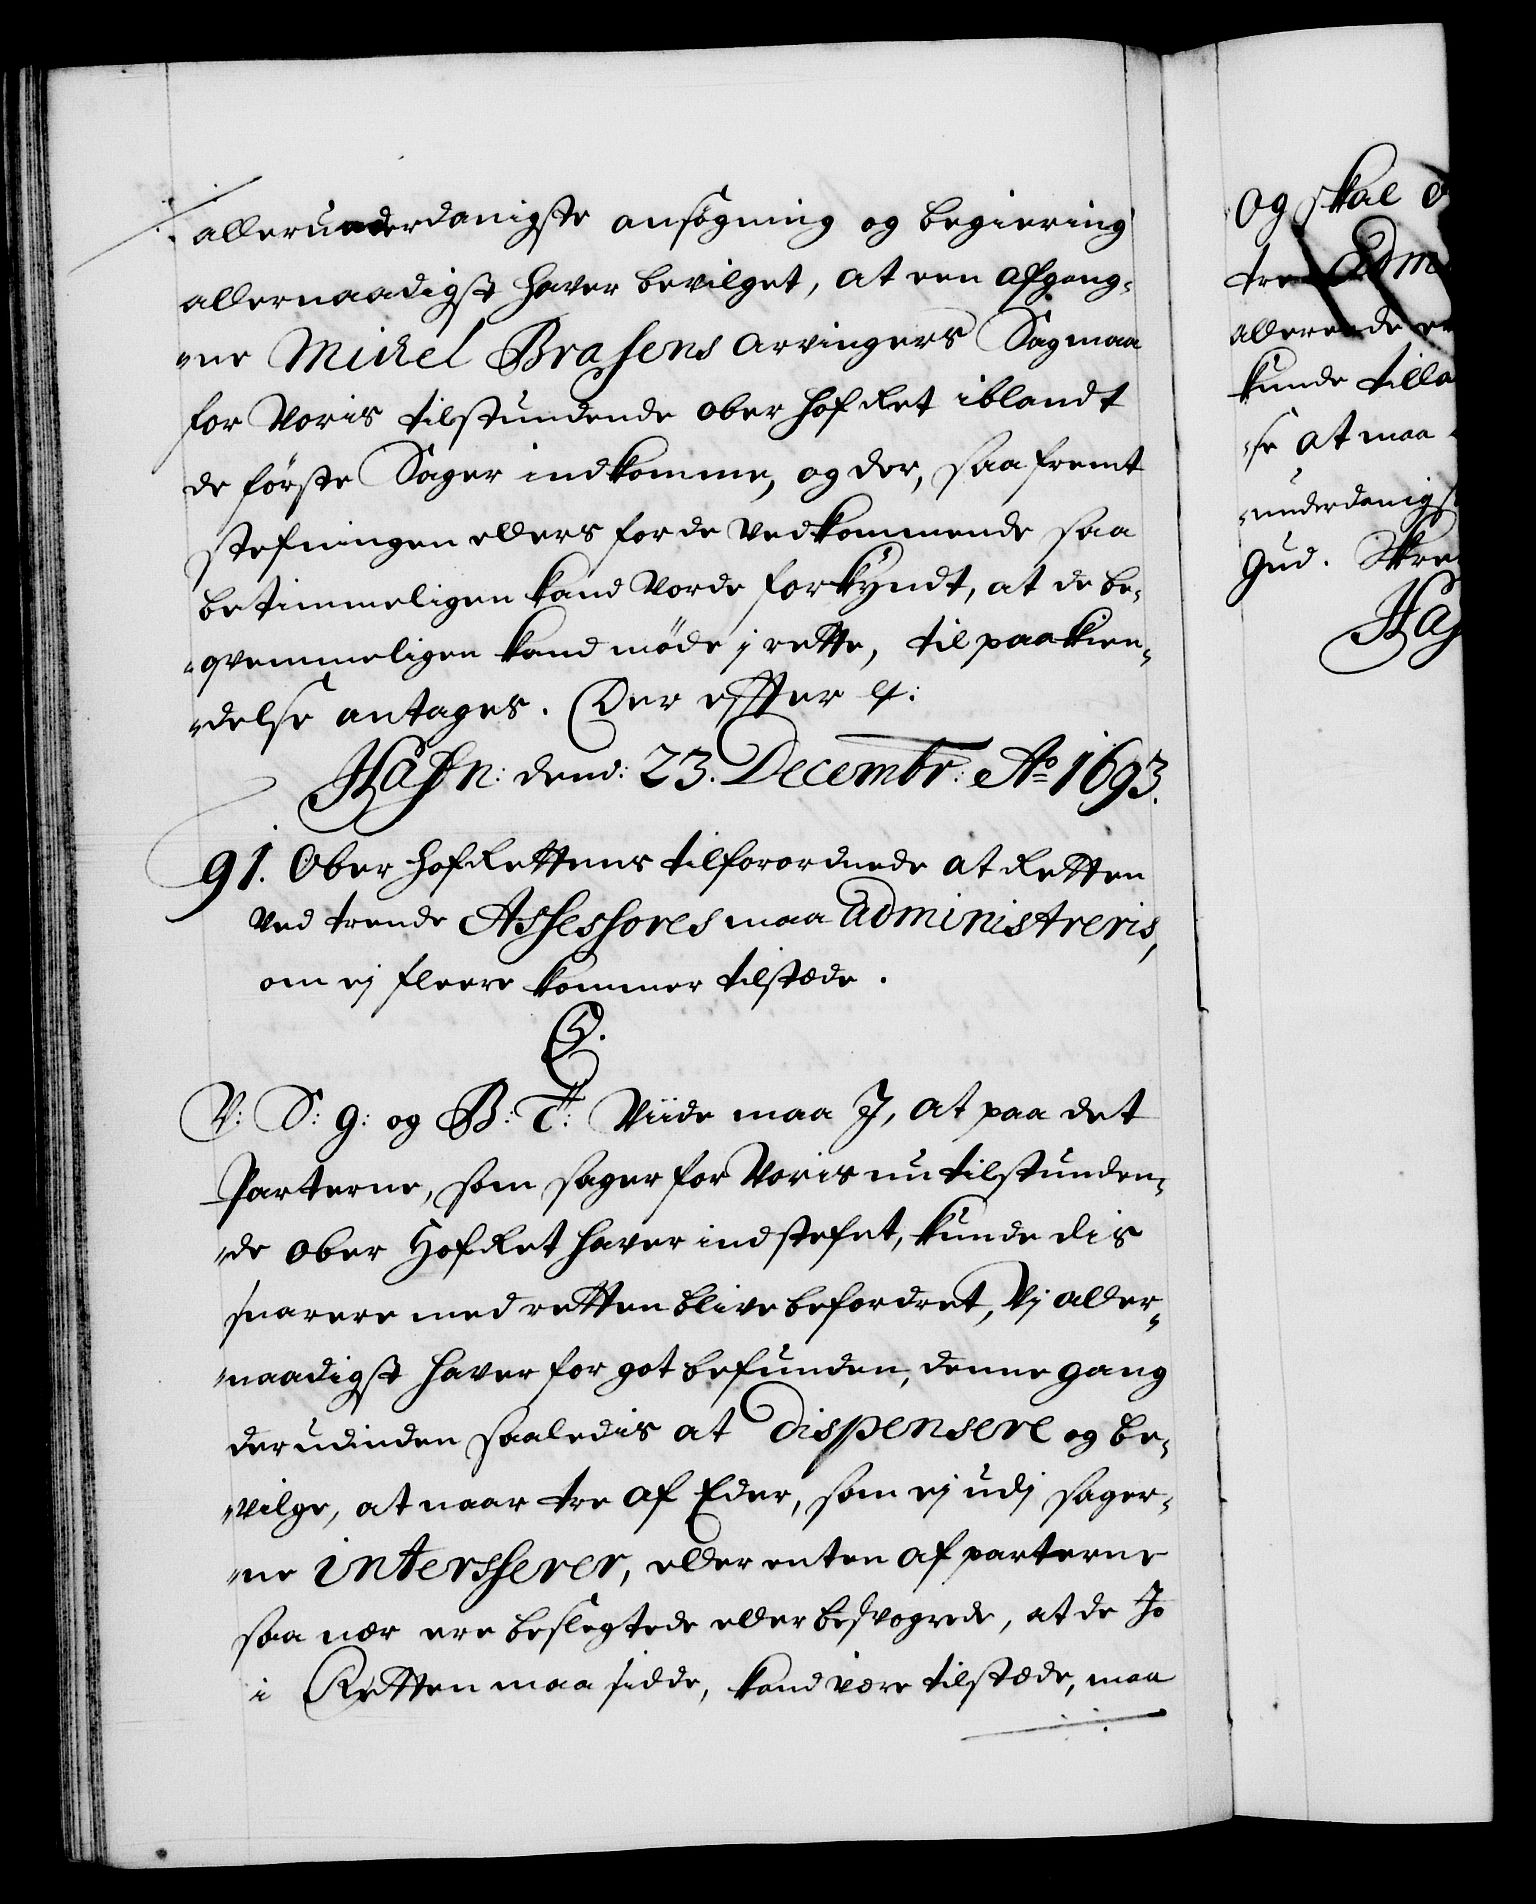 allerunderdanigste ansøgning og begiering
allernaadigst haver bevilget, at een afgang-
ne Mickel Brasens arvingers Sag maa
for Voris tilstundende ober hof Ret iblandt
de første Sager indkomme, og der, saafremt
stefningen ellers for de vedkommende saa
betimmeligen kand vorde forkyndt, at de be-
qvemmeligen kand møde j rette, til paakien-
delse antages. Der effter etc:
Hafn: dend: 23. Decembr: Ao 1693.
91. Ober hofRettens tilforordnede at Retten
ved trende Assessores maa administreris,
om ej fleere kommer tilstæde.
C5.
V: S: g: og B: T: Viide maa J, at paa det
Parterne, som sager for Voris nu tilstunden-
de ober Hof Ret haver indstefnt, kunde dis
snarere med retten blive befordret, Vj aller-
naadigst haver for got befunden, denne gang
derudinden saaledis at dispensere og be-
vilge, at naar tre af Eder, som ej udj sager-
ne intersserer, eller enten af parterne
saa nær ere beslegtede eller besvogrede, at de Jo
i Retten maa sidde, kand være tilstæde, maa
og skal
tre adm
allerende
kunde tilla
se at maa
underdanigs
Gud. Skre
Haf